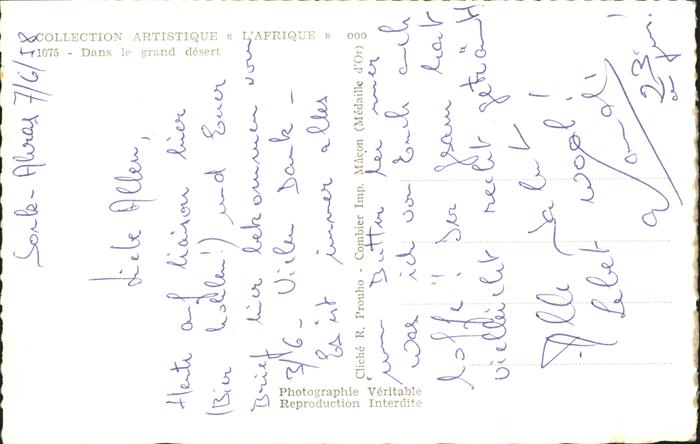 COLLECTION ARTISTIQUE « L'AFRIQUE » ooo
1075 - Dans le grand désert
Cliché R. Prouho - Combier Imp. Mâcon (Médaille d'Or)
Photographie Véritable
Reproduction Interdite
Souk-Ahras 7/6/58
Liebe Alle,
Heute auf liaison hier
(Bier holen!) und Euer
Brief hier bekommen vom
3/6 - Vielen Dank -
Es ist immer alles
in Butter
was ich von Euch auch
hoffe! Der hat
vielleicht recht geträumt
Alle Salut!
Lebet wohl!
23